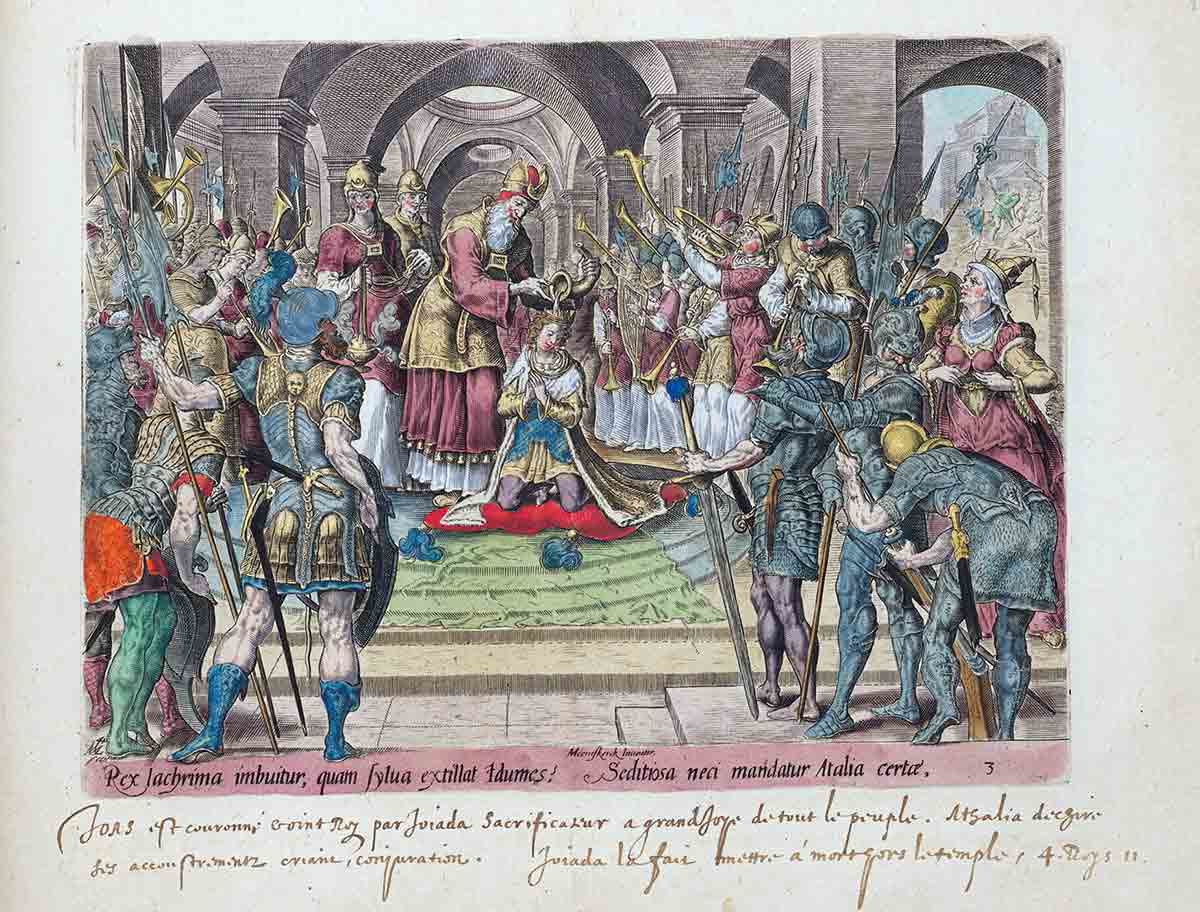 Meemskerck Inuentor
Rex lachrima imbuitur, quam sylua extillat Idumes: Seditiosa neci mandatur Atalia certæ. 3
JOAS est couronné & oint Roy par Joiada Sacrificateur a grand Joye de tout le peuple. Athalia dechire
ses accoustrementz criant, conjuration. Joiada la fait mettre á mort hors le temple, 4. Roys 11.